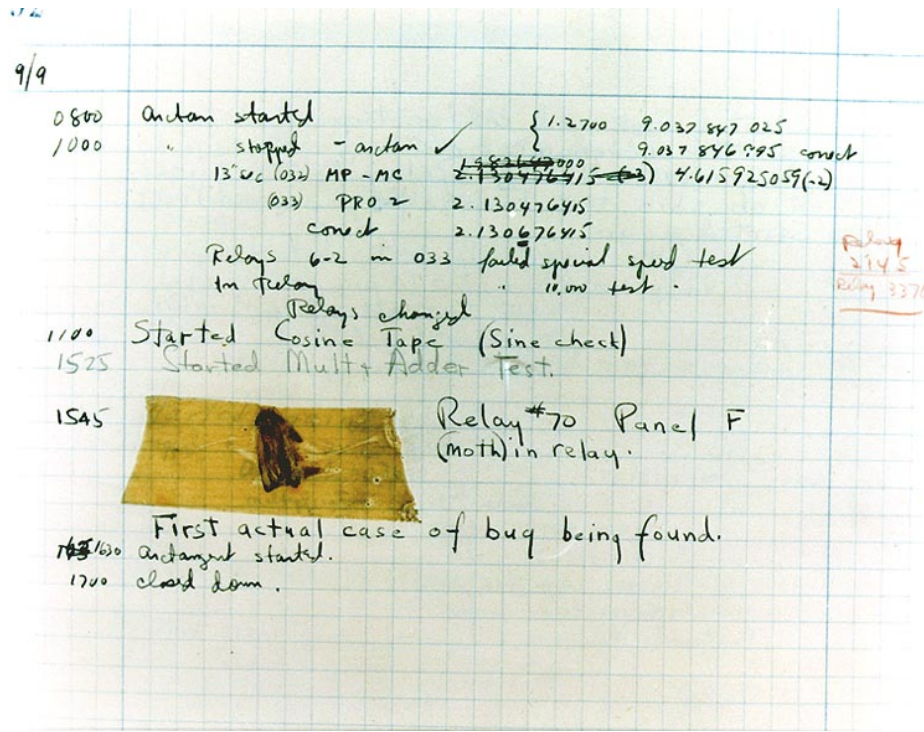 9/9
0800 Antan started
1000 " stopped - antan ✓ { 1.2700 9.037 847 025
9.037 846 795 correct
13" uc (032) MP - MC 2.130476415 (-3) 4.615925059(-2)
(033) PRO 2 2.130476415
correct 2.130676415
Relays 6-2 in 033 failed special speed test
In Relay " 10,000 test .
Relays changed
1100 Started Cosine Tape (Sine check)
1525 Started Mult + Adder Test.
1545 Relay #70 Panel F
(moth) in relay.
First actual case of bug being found.
1630 Antangent started.
1700 closed down .
Relay
2145
Relay 3370